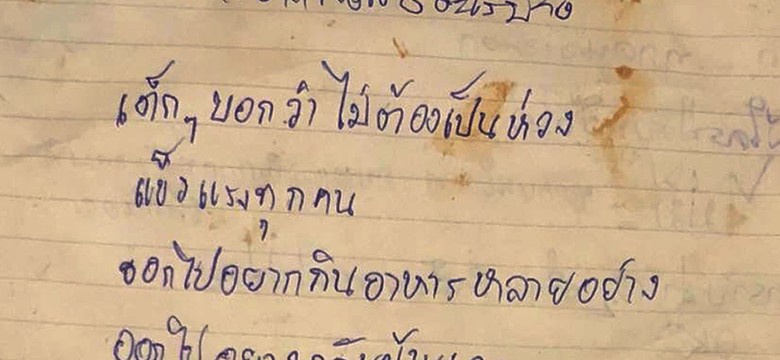 เด็กๆ บอกว่า ไม่ต้องเป็นห่วง
แข็งแรงทุกคน
ออกไปอยากกินอาหารหลายอย่าง
ออกไป